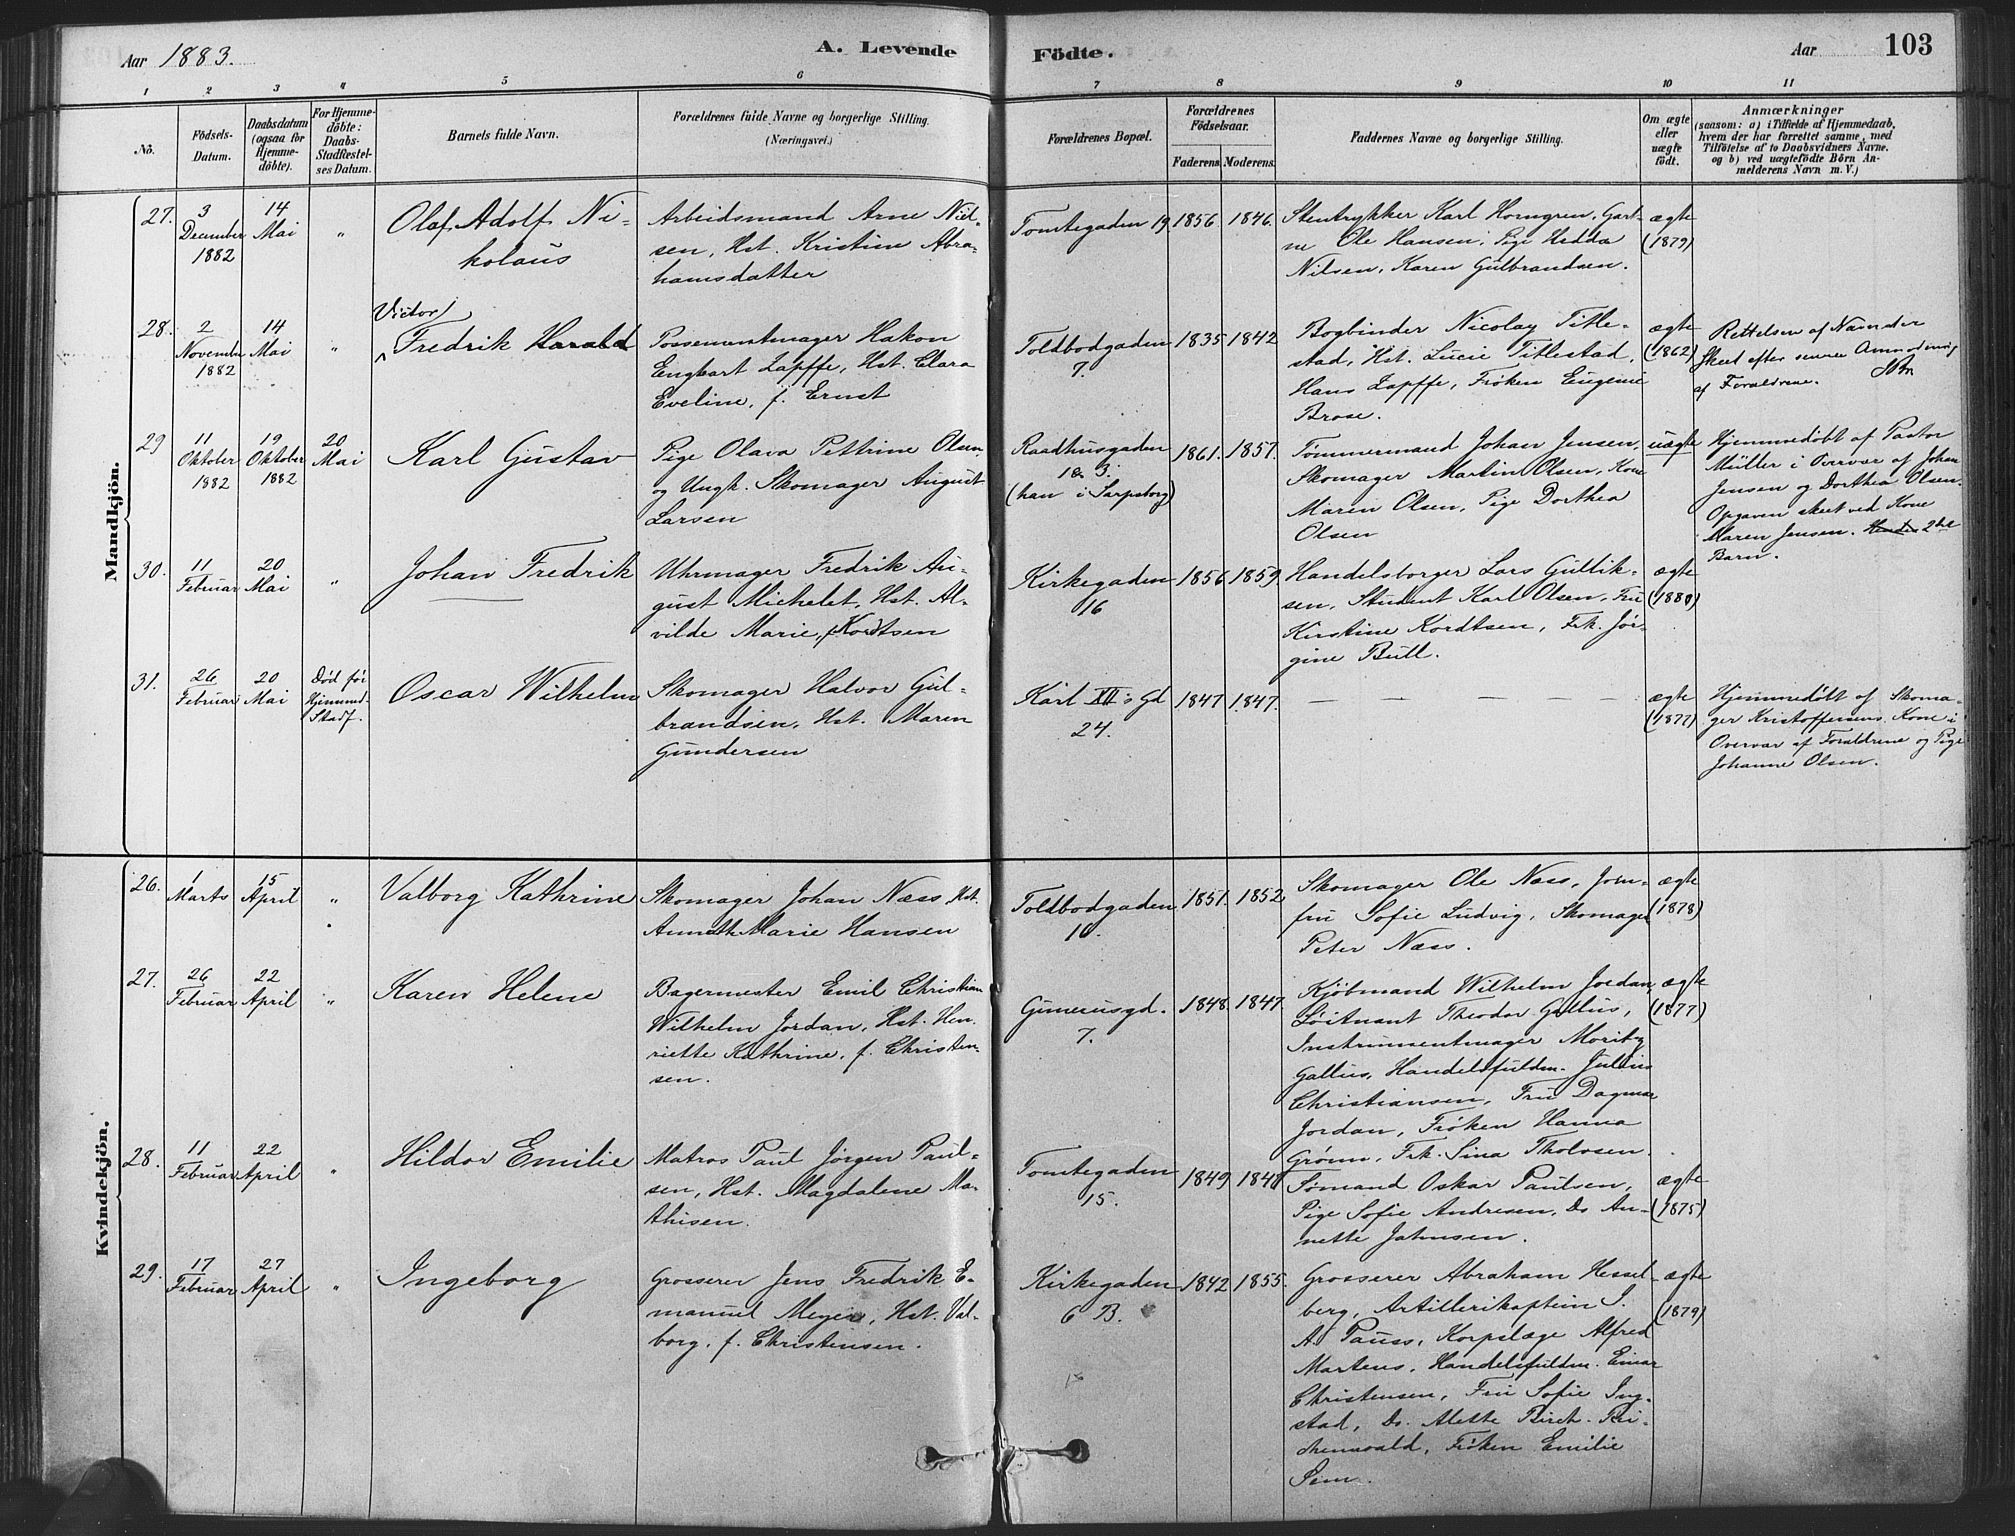 Aar 1883.
A. Levende
Födte.
Aar
103
1 2 3 4 5 6 7 8 9 10 11
No.
Födsels-Datum.
Daabsdatum (ogsaa for Hjemme-döbte).
For Hjemme-döbte: Daabs-Stadfestelses Datum.
Barnets fulde Navn.
Forældrenes fulde Navne og borgerlige Stilling. (Næringsvei.)
Forældrenes Bopæl.
Forældrenes Födselsaar.
Faderens. Moderens.
Faddernes Navne og borgerlige Stilling.
Om ægte eller uægte födt.
Anmærkninger
(saasom: a) i Tilfælde af Hjemmedaab,
hvem der har forrettet samme, med
Tilföielse af to Daabsvidners Navne.
og b) ved uægtefödte Börn An-
melderens Navn m. V.)
Mandkjön.
27.
3 December 1882
14 Mai
"
Olaf Adolf Ni-
kolaus
Arbeidsmand Arne Niel-
sen, Hst. Kristine Abra-
hamsdatter
Tomtegaden 19
1856
1846.
Stentrykker Karl Horngren, Gart-
ne Ole Hansen, Pige Hedda
Nilsen, Karen Gulbrandsen.
ægte
(1879)
28.
2 November 1882
14 Mai
"
Victor
Fredrik Harald
Possementmager Hakon
Engbart Zapffe, Hst. Clara
Eveline, f. Ernst
Toldbodgaden
7.
1835
1842
Bogbinder Nicolay Title-
stad, Hst. Lucie Titlestad,
Hans Zapffe, Frøken Eugenie
Brose.
ægte
(1862)
Rettelsen af Navnder
Skeet efter senere Anmodning
af Forældrene.
29
11 Oktober 1882
19 Oktober 1882
20 Mai
Karl Gustav
Pige Olava Pettrine Olsen
og Ungk. Skomager August
Larsen
Raadhusgaden
1 & 3.
(han i Sarpsborg)
1861.
1857.
Tømmermand Johan Jensen,
Skomager Martin Olsen, Kone
Maren Olsen, Pige Dorthea
Olsen
uægte
Hjemmedøbt af Pastor
Müller i Overvær af Johan
Jensen og Dorthea Olsen.
Opgaven skeet ved Kone
Maren Jensen. Hendes 2det
Barn.
30.
11 Februar
20 Mai
"
Johan Fredrik
Uhrmager Fredrik Au-
gust Michelet, Hst. Al-
vilde Marie, f. Kordtsen
Kirkegaden
16
1856
1859
Handelsborger Lars Gullik-
sen, Student Karl Olsen, Fru
Kirstine Kordtsen, Frk. Jør-
gine Bull.
ægte
(1880)
31.
26 Februar
20 Mai
Død før
Hjemmed.
Stadf.
Oscar Wilhelm
Skomager Halvor Gul-
brandsen, Hst. Maren
Gundersen
Karl XII's Gd
24.
1847
1847.
— — — —
ægte
(1877)
Hjemmedøbt af Skoma-
ger Kristoffersens Kone i
Overvær af Forældrene og Pige
Johanne Olsen.
Kvindekjön.
26.
1 Marts
15 April
"
Valborg Kathrine
Skomager Johan Næss, Hst.
Anneth Marie Hansen
Toldbodgaden
10.
1851.
1852
Skomager Ole Næss, Jom-
fru Sofie Ludvig, Skomager
Peter Næss.
ægte
(1878)
27.
26 Februar
22 April
"
Karen Helene
Bagermester Emil Christian
Wilhelm Jordan, Hst. Hen-
riette Kathrine, f. Christen-
sen.
Gunerusgd.
7.
1848.
1847.
Kjøbmand Wilhelm Jordan,
Løitnant Theodor Gallus,
Instrumentmager Moritz
Gallus, Handelsfuldm. Julius
Christiansen, Fru Dagmar
Jordan, Frøken Hanna
Grønn, Frk. Sina Tholvsen.
ægte
(1877)
28.
11 Februar
22 April
"
Hildor Emilie
Matros Paul Jørgen Paul-
sen, Hst. Magdalene Ma-
thisen.
Tomtegaden
15.
1849
1848
Sømand Oskar Paulsen,
Pige Sofie Andresen, Do An-
nette Johnsen.
ægte
(1875)
29.
17 Februar
27 April
"
Ingeborg
Grosserer Jens Fredrik E-
manuel Meyer, Hst. Val-
borg, f. Christensen.
Kirkegaden
6 B.
1842
1855.
Grosserer Abraham Hessel-
berg, Artillerikaptein I.
A. Pauss, Korpslæge Alfred
Martens, Handelsfuldm. Einar
Christensen, Fru Sofie Ing-
stad, Do. Alette Birch-Rei-
chenwald, Frøken Emilie
Sem.
ægte
(1879)